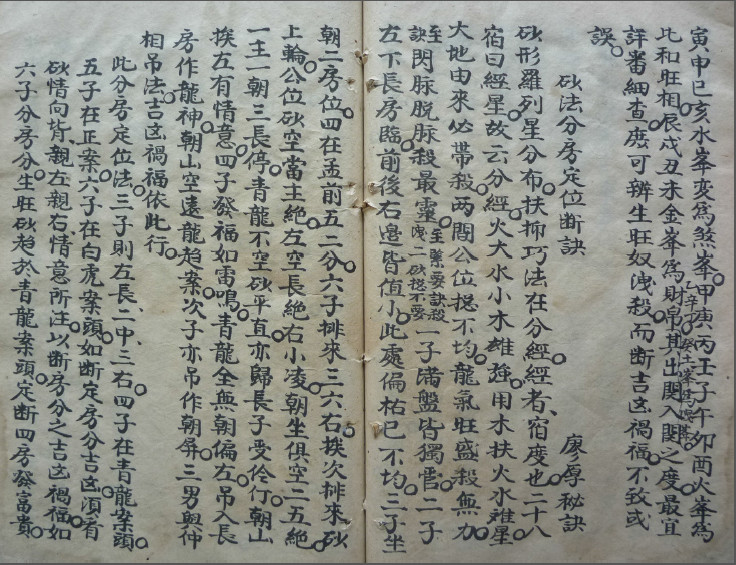 寅申巳亥水峯变為煞峯甲庚丙壬子午卯酉火峯為
比和旺相辰戌丑未金峯為財帛其出関入関之度最宜
評畨細查庶可辨生旺奴洩殺而断吉凶禍福不致或
誤
砂法分房定位断訣
廖厚秘訣
砂形羅列星分布扶抑巧法在分經經者宿度也二十八
宿曰經星故云分經火大水小木雄強用木扶火水雄星
大地由來必帯殺两間公位㧾不均龍氣旺盛殺無力
訣閃脉脱脉殺最靈
一子諸盤皆獨管二子
左下長房臨前後右邉皆值小此處偏枯已不均三子坐
朝二房位四在孟前五二分六子排來三六右挨次排來砂
上輪公位砂空當主絶左空長絶右小凌朝坐俱空二五絶
一主一朝三長停青龍不空砂平直亦歸長子受伶仃朝山
挨左有情意四子發福如雷鳴青龍全無朝偏左吊入長
房作龍神朝山空遠龍趋案次子亦吊作朝屏三男與仲
相吊法吉凶禍福依此行
此分房定位法三子則左長二中三右四子在青龍案頭
五子在正案六子在白虎案頭如断定房分吉凶湏看
砂情向背親左親右情意所注以断房分之吉凶禍福如
六子分房分生旺砂趋於青龍案頭定断四房發富貴